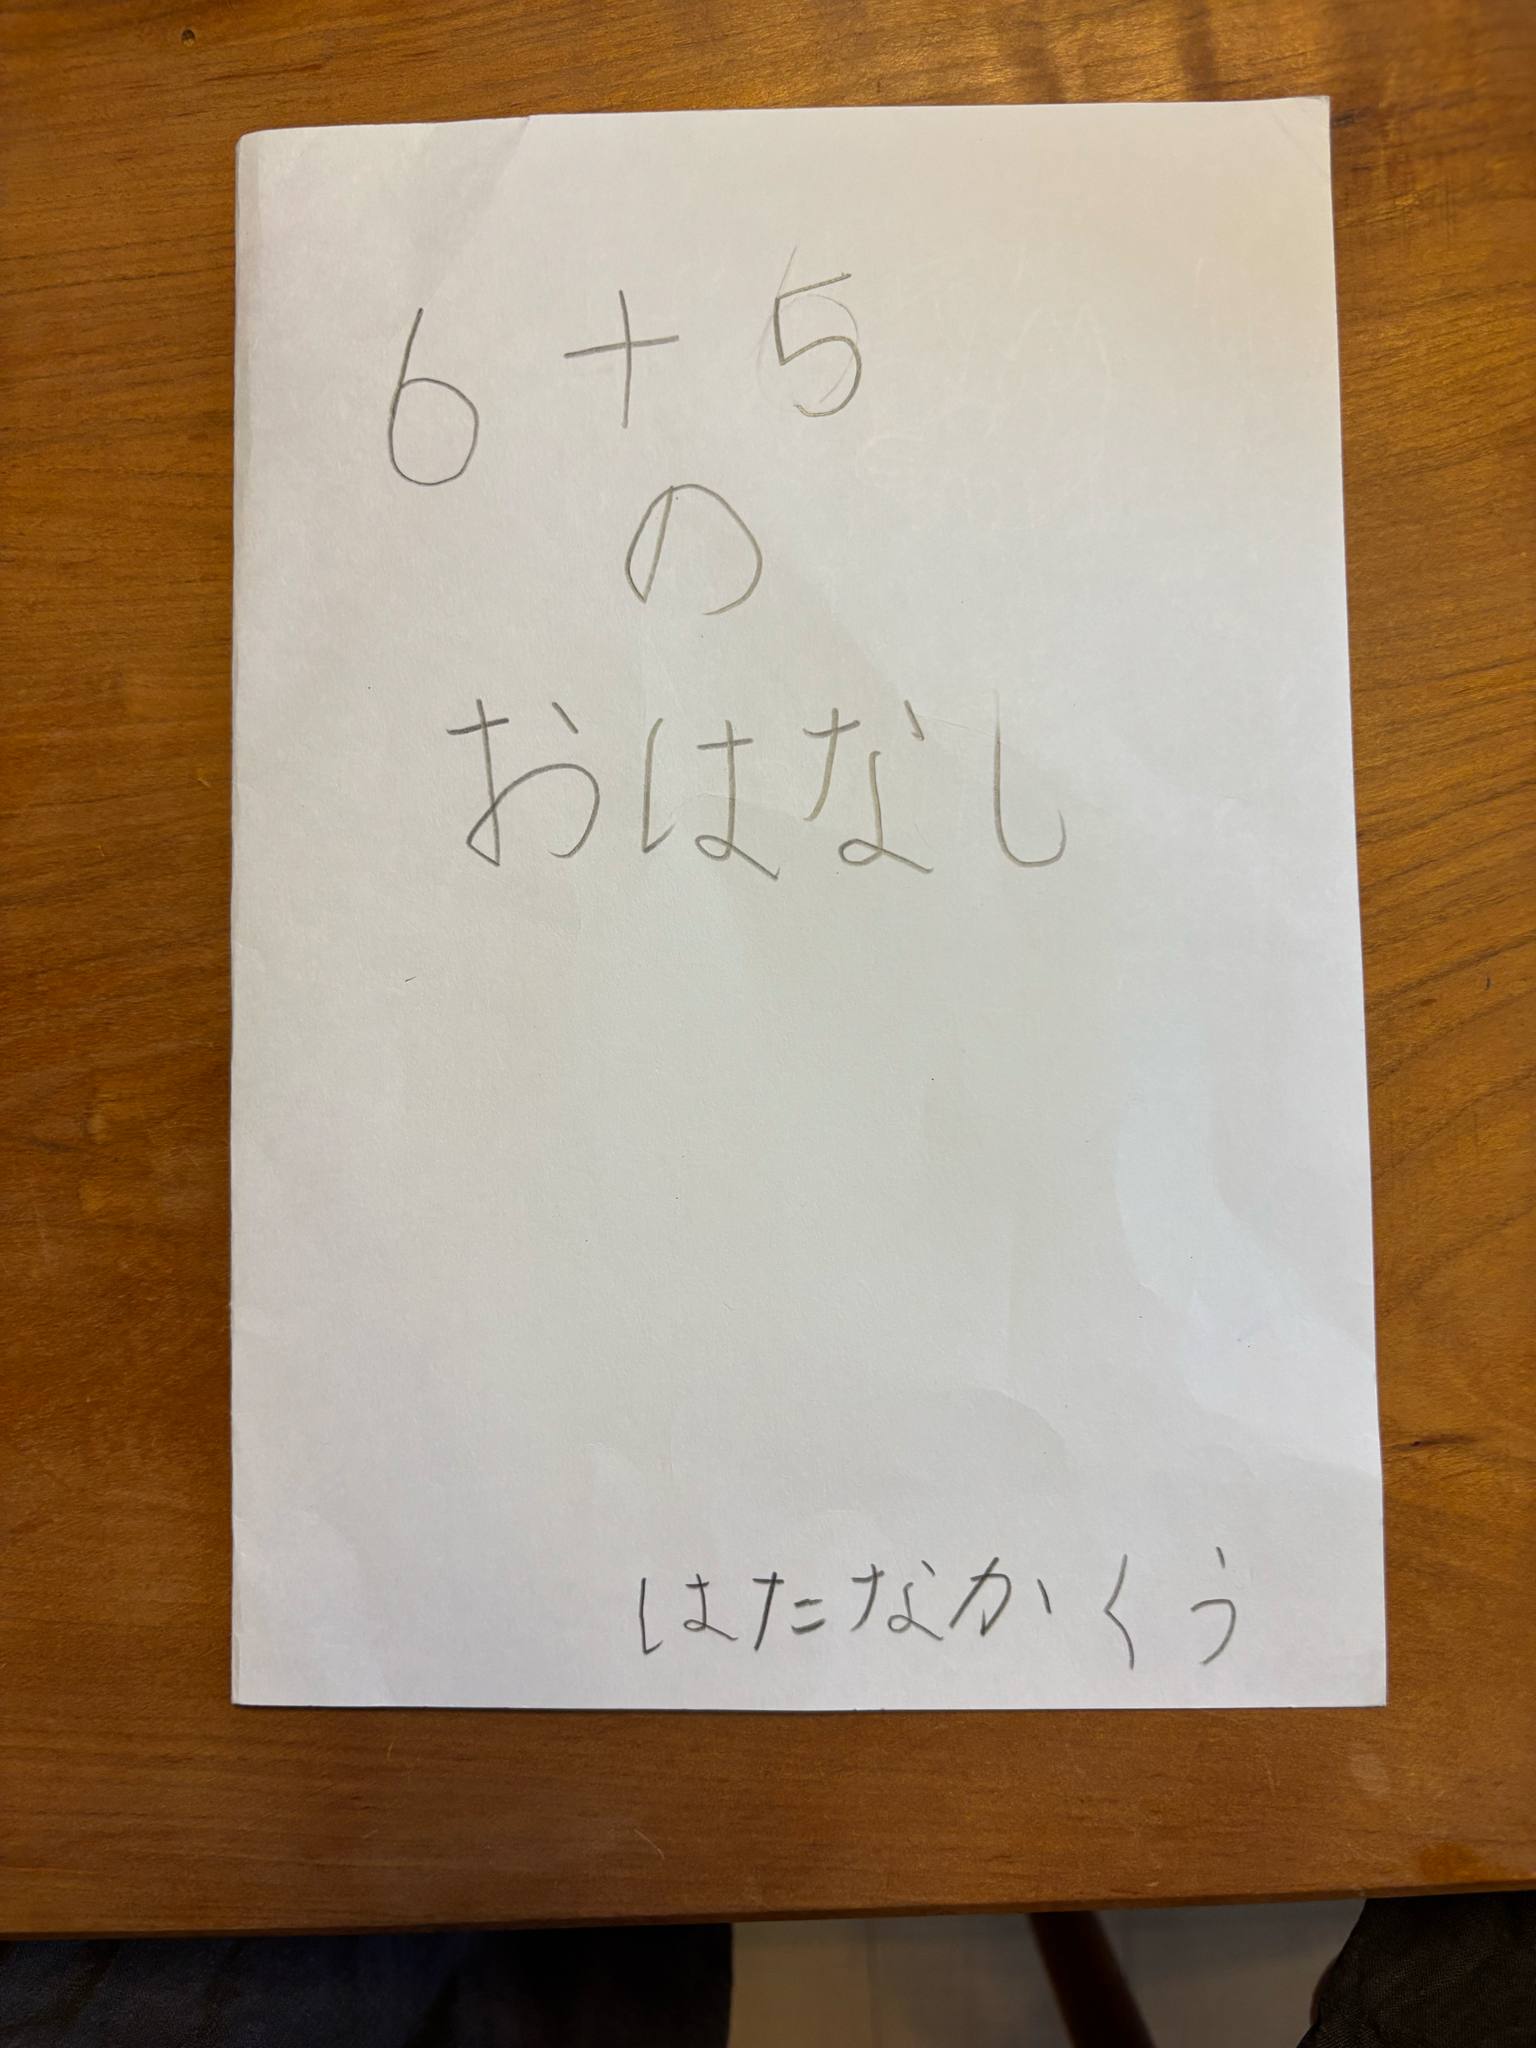 6+5
の
おはなし
はたなかくう